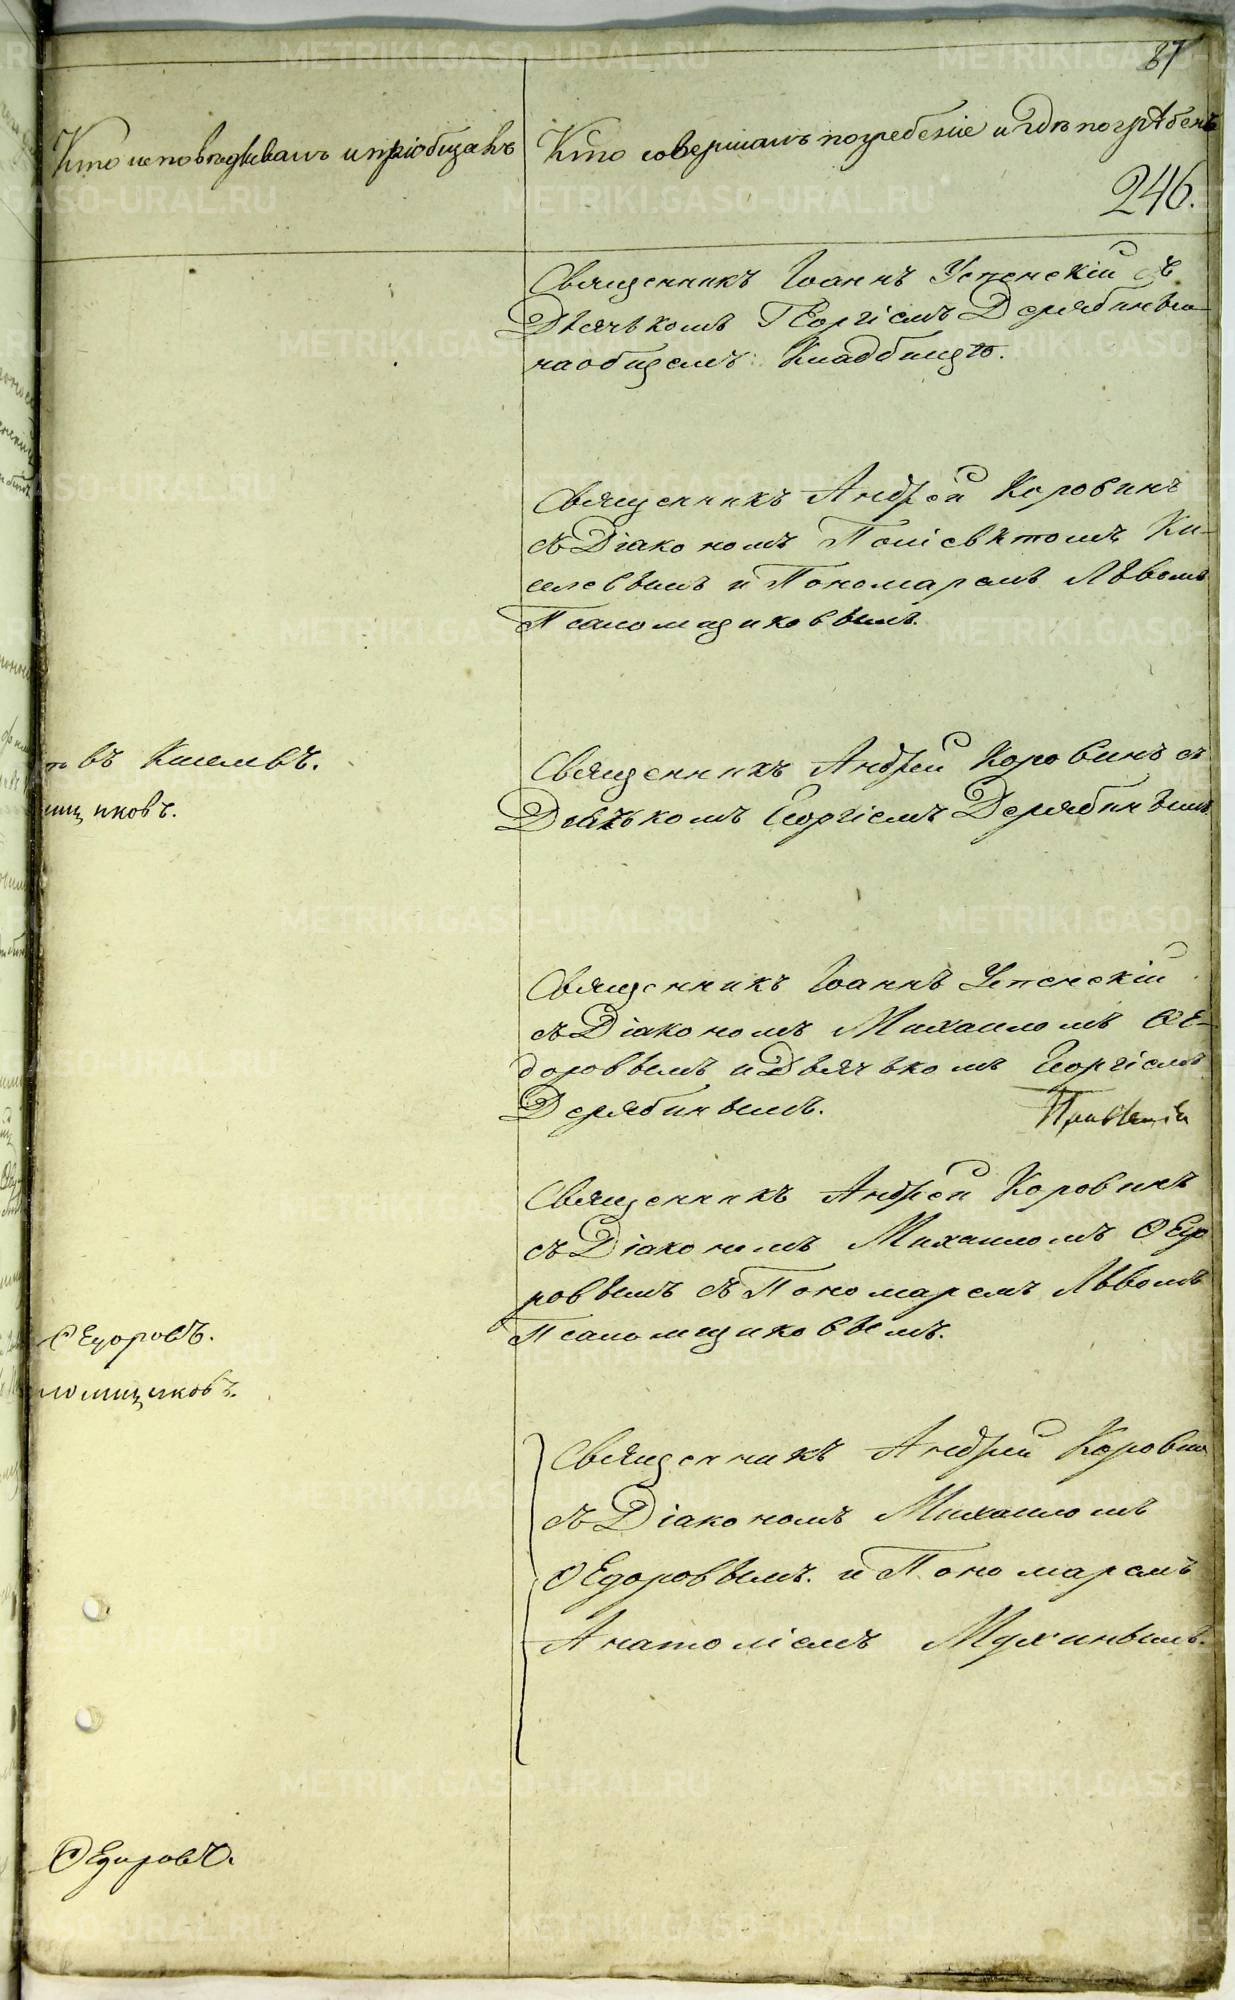 87
Кто исповѣдывалъ и пріобщалъ
Кто совершалъ погребеніе и гдѣ погребенъ
246.
Священникъ Іоаннъ Успенскій съ
Дьячькомъ Георгіемъ Дерябинымъ
на общемъ Кладбище.
Священникъ Андрей Коровинъ
съ Діакономъ Поліевктомъ Ки-
селевымъ и Пономаремъ Львомъ
Псаломщиковымъ.
въ Киселевъ.
щиковъ.
Священникъ Андрей Коровинъ съ
Дьячькомъ Георгіемъ Дерябинымъ
Священникъ Іоаннъ Успенскій
съ Діакономъ Михаиломъ Ѳе-
доровымъ и Дьячькомъ Георгіемъ
Дерябинымъ.
Священникъ Андрей Коровинъ
съ Діакономъ Михаиломъ Ѳедо
ровымъ съ Пономаремъ Львомъ
Псаломщиковымъ.
Ѳедоровъ.
ломщиковъ.
Священникъ Андрей Коровин
съ Діакономъ Михаиломъ
Ѳедоровымъ. и Пономаремъ
Анатоліемъ Мухинымъ.
Ѳедоровъ.
METRIKI.GASO-URAL.RU